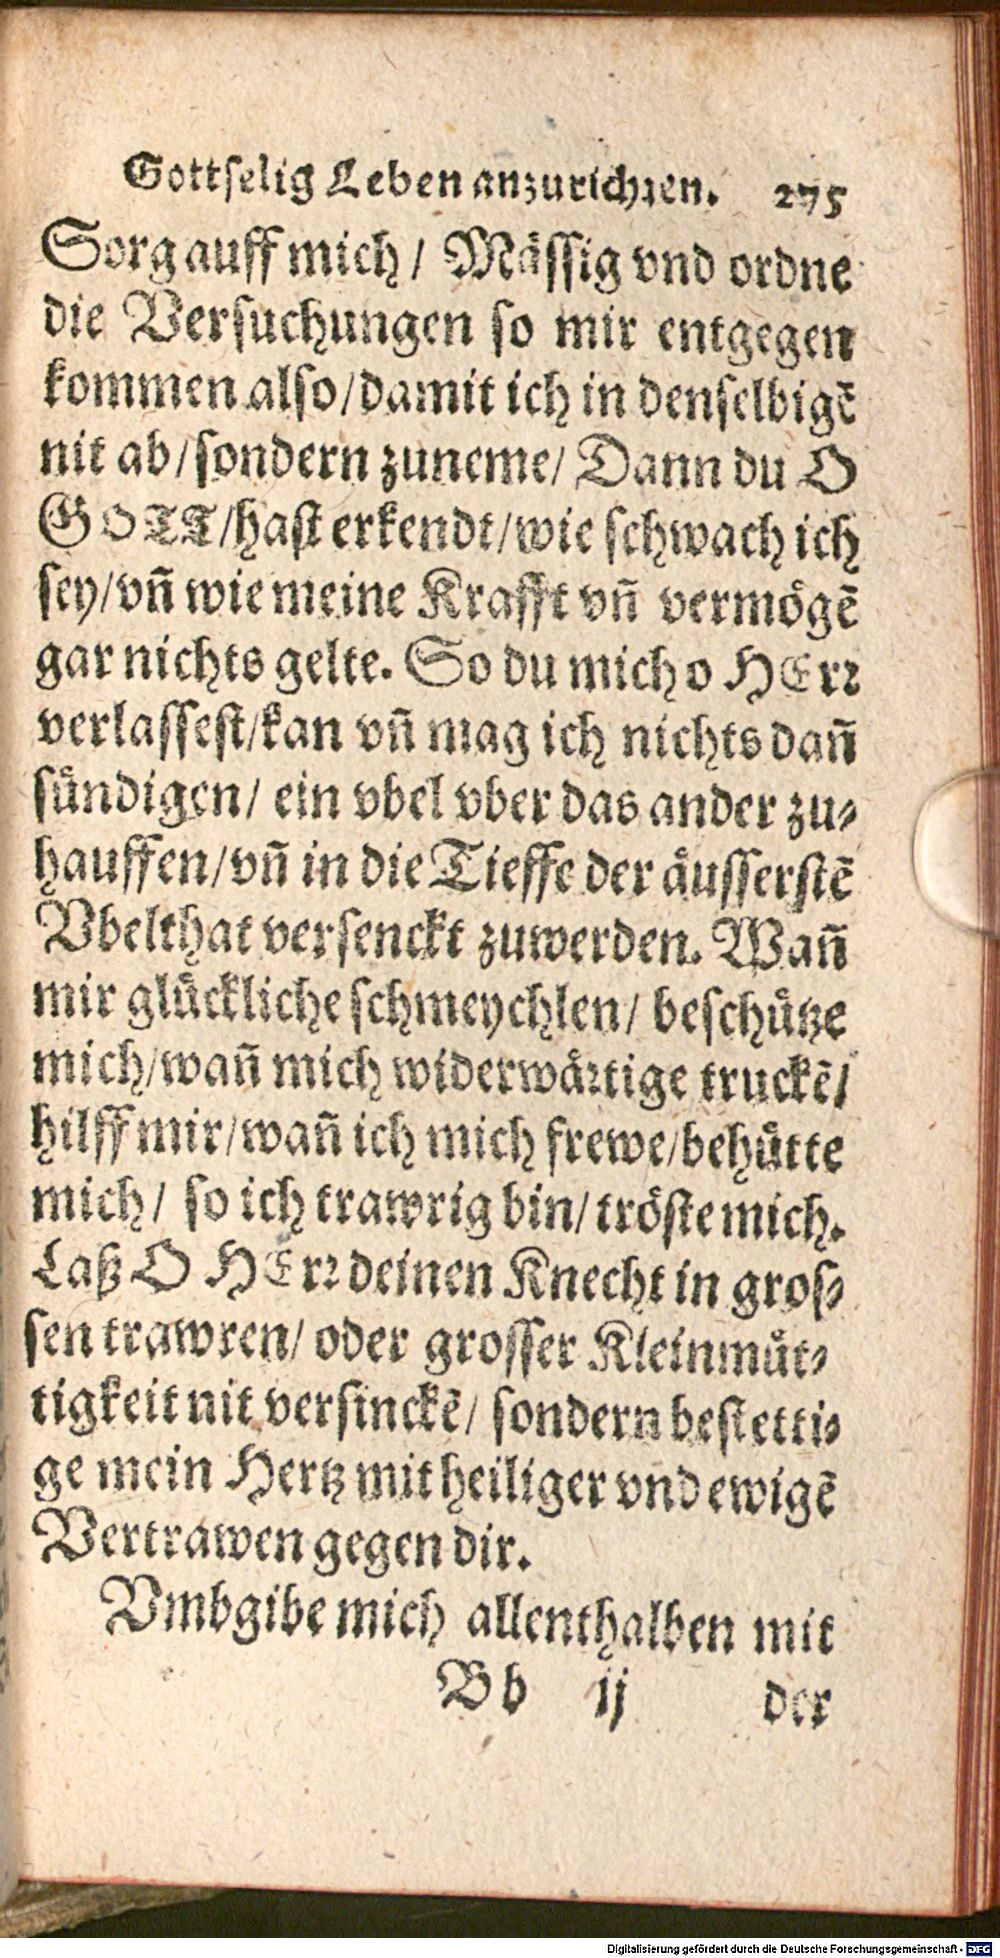 Gottselig Leben anzurichten. 275
Sorg auff mich / Mässig vnd ordne
die Versuchungen so mir entgegen
kommen also/damit ich in denselbigẽ
nit ab/sondern zuneme/ Dann du O
GOTT/hast erkendt/wie schwach ich
sey/vñ wie meine Krafft vñ vermögẽ
gar nichts gelte. So du mich o HErr
verlassest/kan vñ mag ich nichts dañ
sündigen/ ein vbel vber das ander zu-
hauffen/vñ in die Tieffe der äusserstẽ
Vbelthat versenckt zuwerden. Wañ
mir glückliche schmeychlen/ beschütze
mich/wañ mich widerwärtige truckẽ/
hilff mir/wañ ich mich frewe/behütte
mich/ so ich trawrig bin/tröste mich.
Laß O HErr deinen Knecht in gros-
sen trawren/ oder grosser Kleinmüt-
tigkeit nit versinckẽ/ sondern bestetti-
ge mein Hertz mit heiliger vnd ewigẽ
Vertrawen gegen dir.
Vmbgibe mich allenthalben mit
Bb ij der
Digitalisierung gefördert durch die Deutsche Forschungsgemeinschaft - DFG